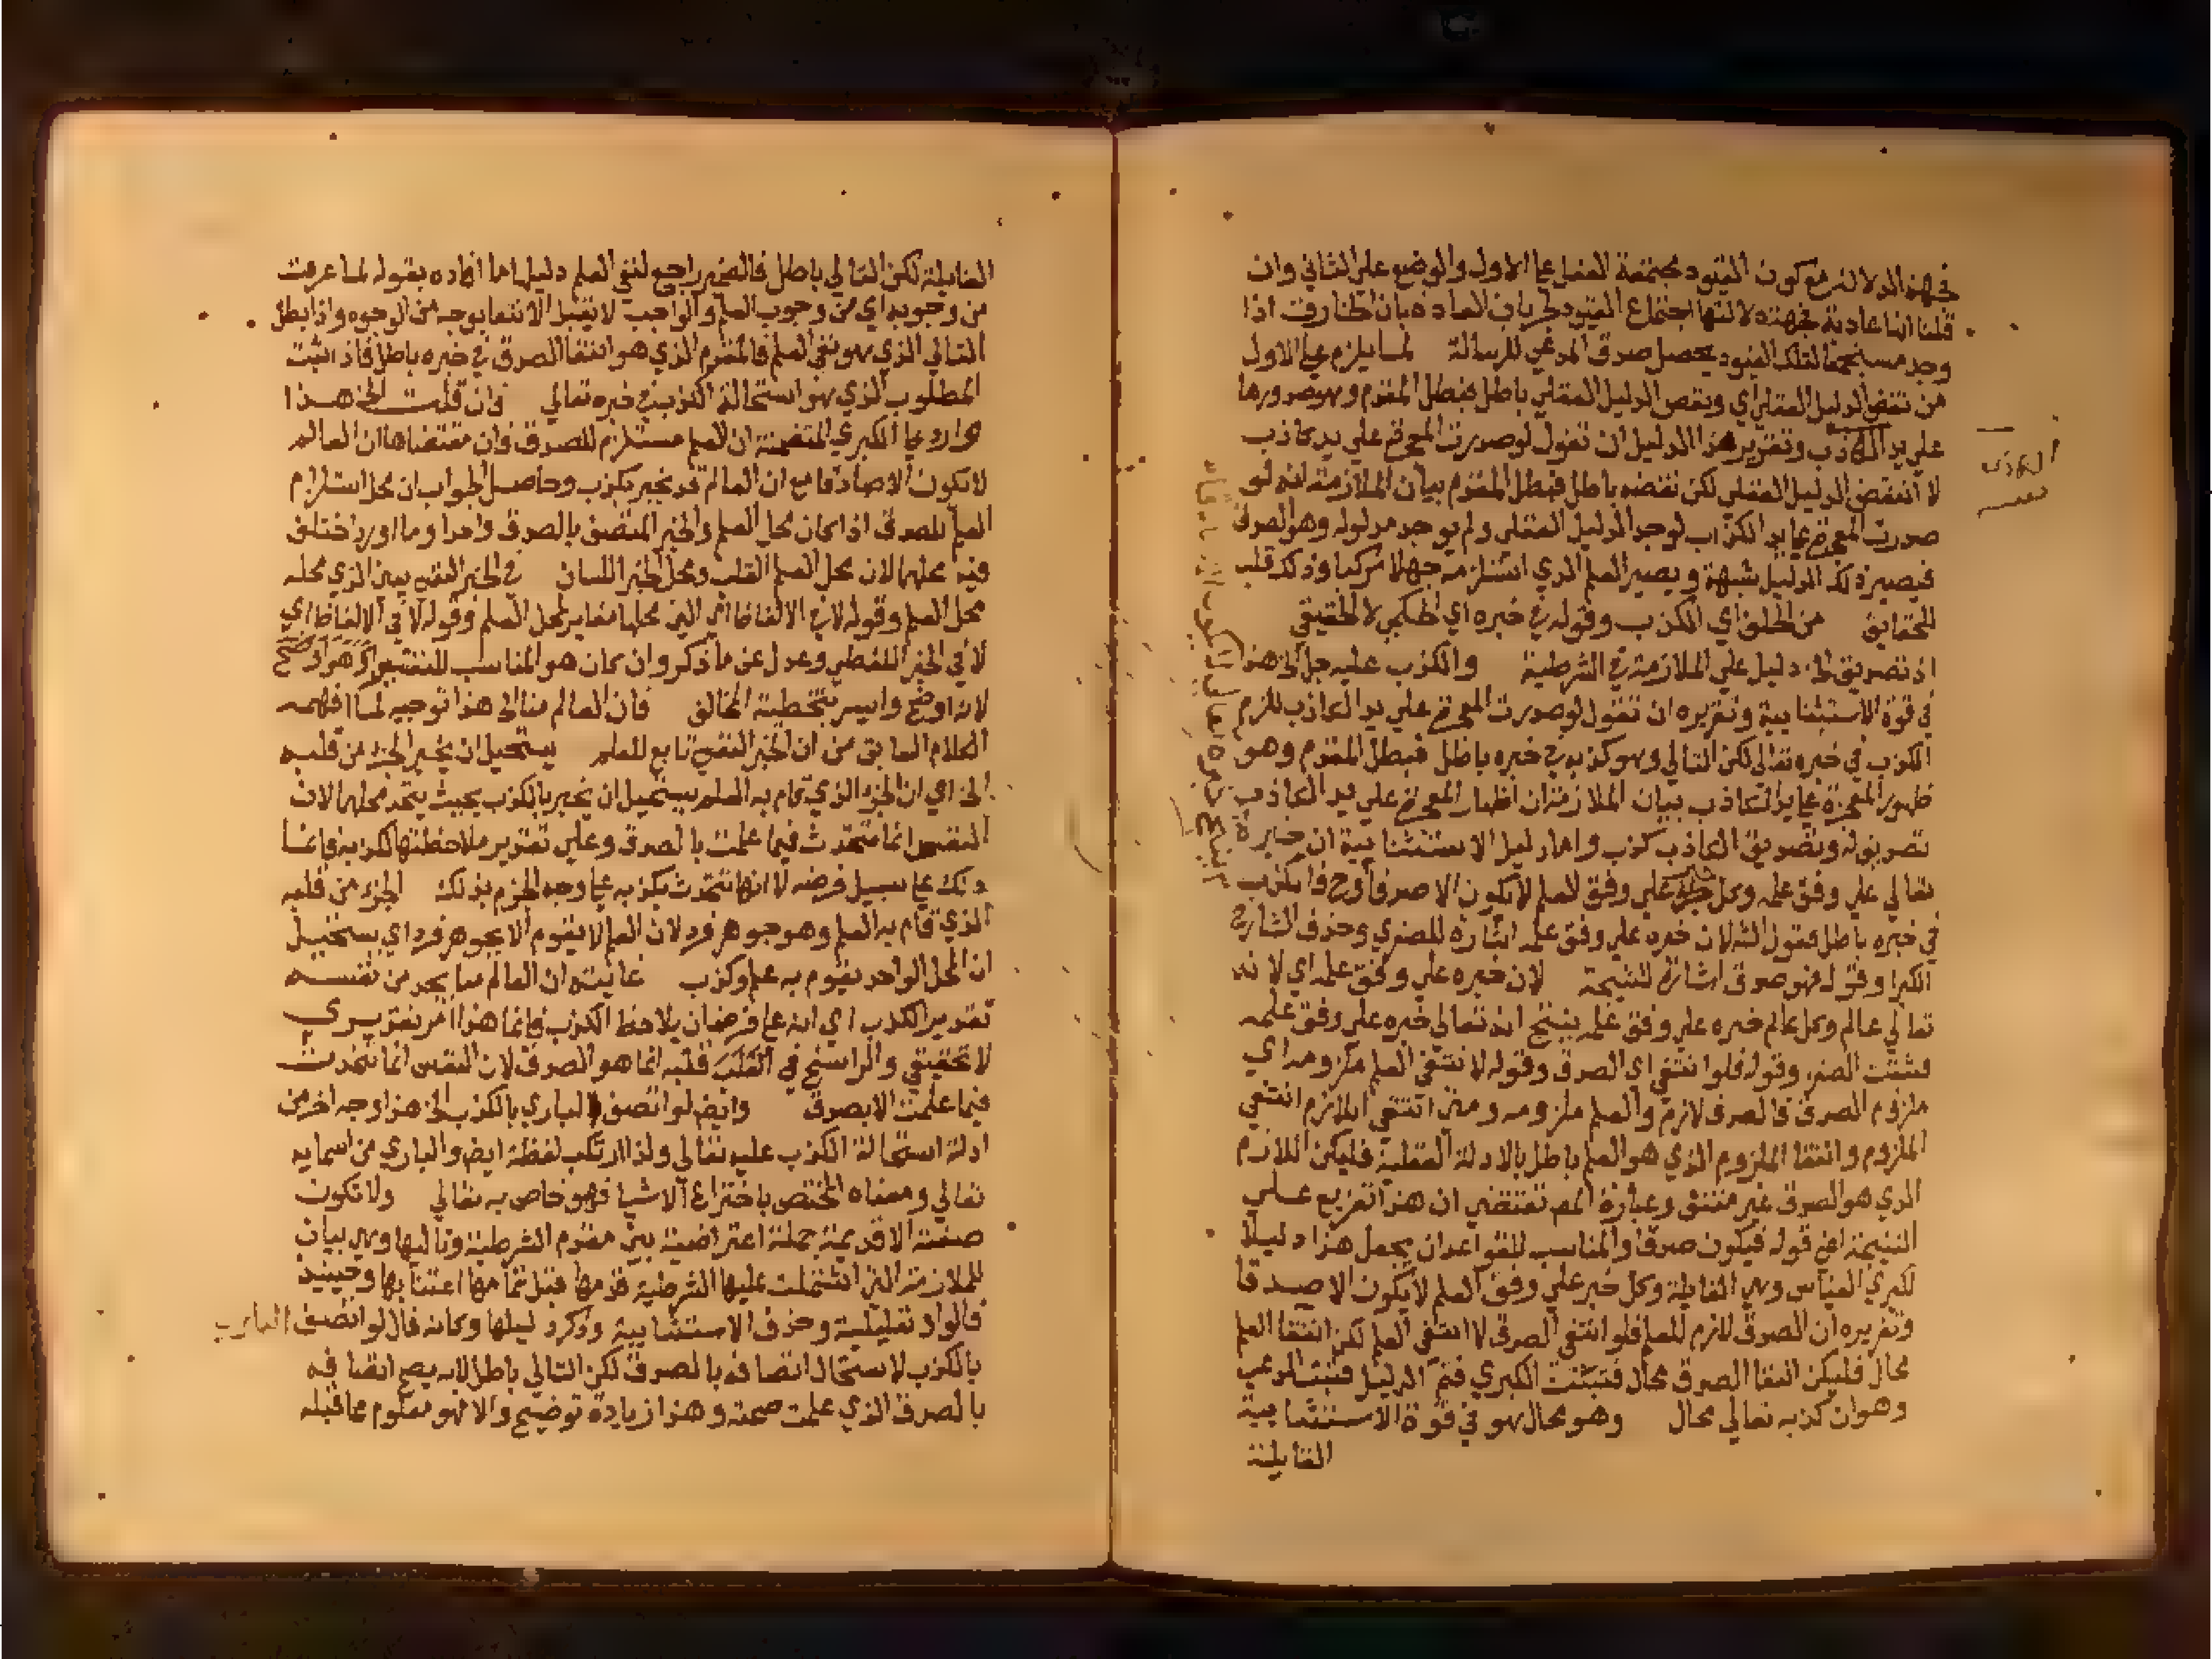 فجهة الدلالة مع كون القيود مجتمعة العقل علي الاول والوضع علي الثاني وان
قلنا انها عادية فجهة دلالتها اجتماع القيود لجريان العادة بان الخارق اذا
وجد مستجمعا لتلك القيود يحصل صدق المدعي للرسالة لما يلزم علي الاول
من نقض الدليل العقلي اي ونقض الدليل العقلي باطل فبطل المقدم وهو صدورها
علي يد الكاذب وتقرير هذا الدليل ان تقول لو صدرت المعجزة علي يد كاذب
لا انتقض الدليل العقلي لكن نقضه باطل فبطل المقدم بيان الملازمة انه لو
صدرت المعجزة علي يد الكذاب لوجد الدليل العقلي ولم يوجد مدلوله وهو الصدق
فيصير ذلك الدليل شبهة ويصير العلم الذي استلزمه جهلا مركبا وذلك قلب
الحقايق من الخلق اي الكذب وقوله في خبره اي الحكمي لا الحقيقي
اذ تصديق الخ دليل علي الملازمة في الشرطية والكذب عليه جل الخ هذا
في قوة الاستثنايية وتقريره ان تقول لو صدرت المعجزة علي يد الكاذب للزم
الكذب في خبره تعالي لكن التالي وهو كذبه في خبره باطل فبطل المقدم وهو
ظهور المعجزة علي يد الكاذب بيان الملازمة ان اظهار المعجزة علي يد الكاذب
تصديق له وتصديق الكاذب كذب واما دليل الاستثنايية ان خبره
تعالي علي وفق علمه وكل خبر علي وفق العلم لا يكون الا صدقا وح فالكذب
في خبره باطل فقول الش لان خبره علي وفق علمه اشارة للصغري وحذف الشارح
الكبرا وقوله فهو صدق اشارة للنتيجة لان خبره علي وفق علمه اي لانه
تعالي عالم وكل عالم خبره علي وفق علمه ينتج انه تعالي خبره علي وفق علمه
فثبتت الصغر وقوله فلو انتفي اي الصدق وقوله لانتفي العلم ملزومه اي
ملزوم الصدق فالصدق لازم والعلم ملزومه ومتي انتفي اللازم انتفي
الملزوم وانتفا الملزوم الذي هو العلم باطل بالادلة العقلية فليكن اللازم
الذي هو الصدق غير منتف وعبارة المص تقتضي ان هذا تفريع علي
النتيجة اعني قوله فيكون صدقا والمناسب للقواعد ان يجعل هذا دليلا
لكبري القياس وهي القايلة وكل خبر علي وفق العلم لا يكون الا صدقا
وتقريره ان الصدق لازم للعلم فلو انتفي الصدق لا انتفي العلم لكن انتفا العلم
محال فليكن انتفا الصدق محال فثبتت الكبري فتم الدليل فثبت المدعي
وهو ان كذبه تعالي محال وهو محال هو في قوة الاستثنايية
القايلة
الكذاب
القايلة لكن التالي باطل فالضمير راجع لنفي العلم دليلها ما افاده بقوله لما عرفت
من وجوبه اي من وجوب العلم والواجب لا يقبل الانتفا بوجه من الوجوه واذا بطل
التالي الذي هو نفي العلم فالمقدم الذي هو انتفا الصدق في خبره باطل فاذا ثبت
المطلوب الذي هو استحالة الكذب في خبره تعالي فان قلت الخ هذا
وارد علي الكبري المتضمنة ان العلم مستلزم للصدق فان مقتضاها ان العالم
لا يكون الا صادقا مع ان العالم قد يخبر بكذب وحاصل الجواب ان محل استلزام
العلم للصدق اذا كان محل العلم والخبر المتصف بالصدق واحدا وما اورد اختلف
فيه محلهما لان محل العلم القلب ومحل الخبر اللسان في الخبر النفسي الذي محله
محل العلم وقوله لا في الالفاظ اي التي محلها مغاير لمحل العلم وقوله لا في الالفاظ اي
لا في الخبر اللفظي وعدل عن ما ذكر وان كان هو المناسب
لانه اوضح وايسر بتخطية المخالف فان العالم منا الخ هذا توجيه لما افهمه
الكلام السابق من ان الخبر النفسي تابع للعلم يستحيل ان يخبر الجزء من قلبه
الخ اي ان الجزء الذي قام به العلم يستحيل ان يخبر بالكذب بحيث يتحد محلهما لان
النفس انما تتحدث فيما علمت بالصدق وعلي تقدير ملاحظتها الكذب فانما
ذلك علي سبيل فرضه لا انها تتحدث بكذبه علي وجه الجزم بذلك الجزء من قلبه
الذي قام به العلم وهو جوهر فرد لان العلم لا يقوم الا بجوهر فرد اي يستحيل
ان المحل الواحد يقوم به علم وكذب غايته ان العالم منا يجد من نفسه
تقدير الكذب اي انه علي فرض ان يلاحظ الكذب فانما هذا امر تقديري
لا تحقيقي والراسخ في قلبه انما هو الصدق لان النفس انما تتحدث
فيما علمت الا بصدق وايض لو اتصف الباري بالكذب الخ هذا وجه اخر من
ادلة استحالة الكذب عليه تعالي ولذا ارتكب لفظة ايض والباري من اسمايه
تعالي ومعناه المختص باختراع الاشيا فهو خاص به تعالي ولا تكون
صفته الا قديمة جملة اعتراضية بين مقدم الشرطية وتاليها وهي بيان
للملازمة التي اشتملت عليها الشرطية قدمها قبل تمامها اعتنا بها وحينيذ
فالواو تعليلية وحذف الاستثنايية وذكر دليلها وكانه قال لو اتصف الباري
بالكذب لاستحال اتصافه بالصدق لكن التالي باطل لانه يصح اتصافه
بالصدق الذي علمت صحته وهذا زيادة توضيح والا فهو معلوم مما قبله